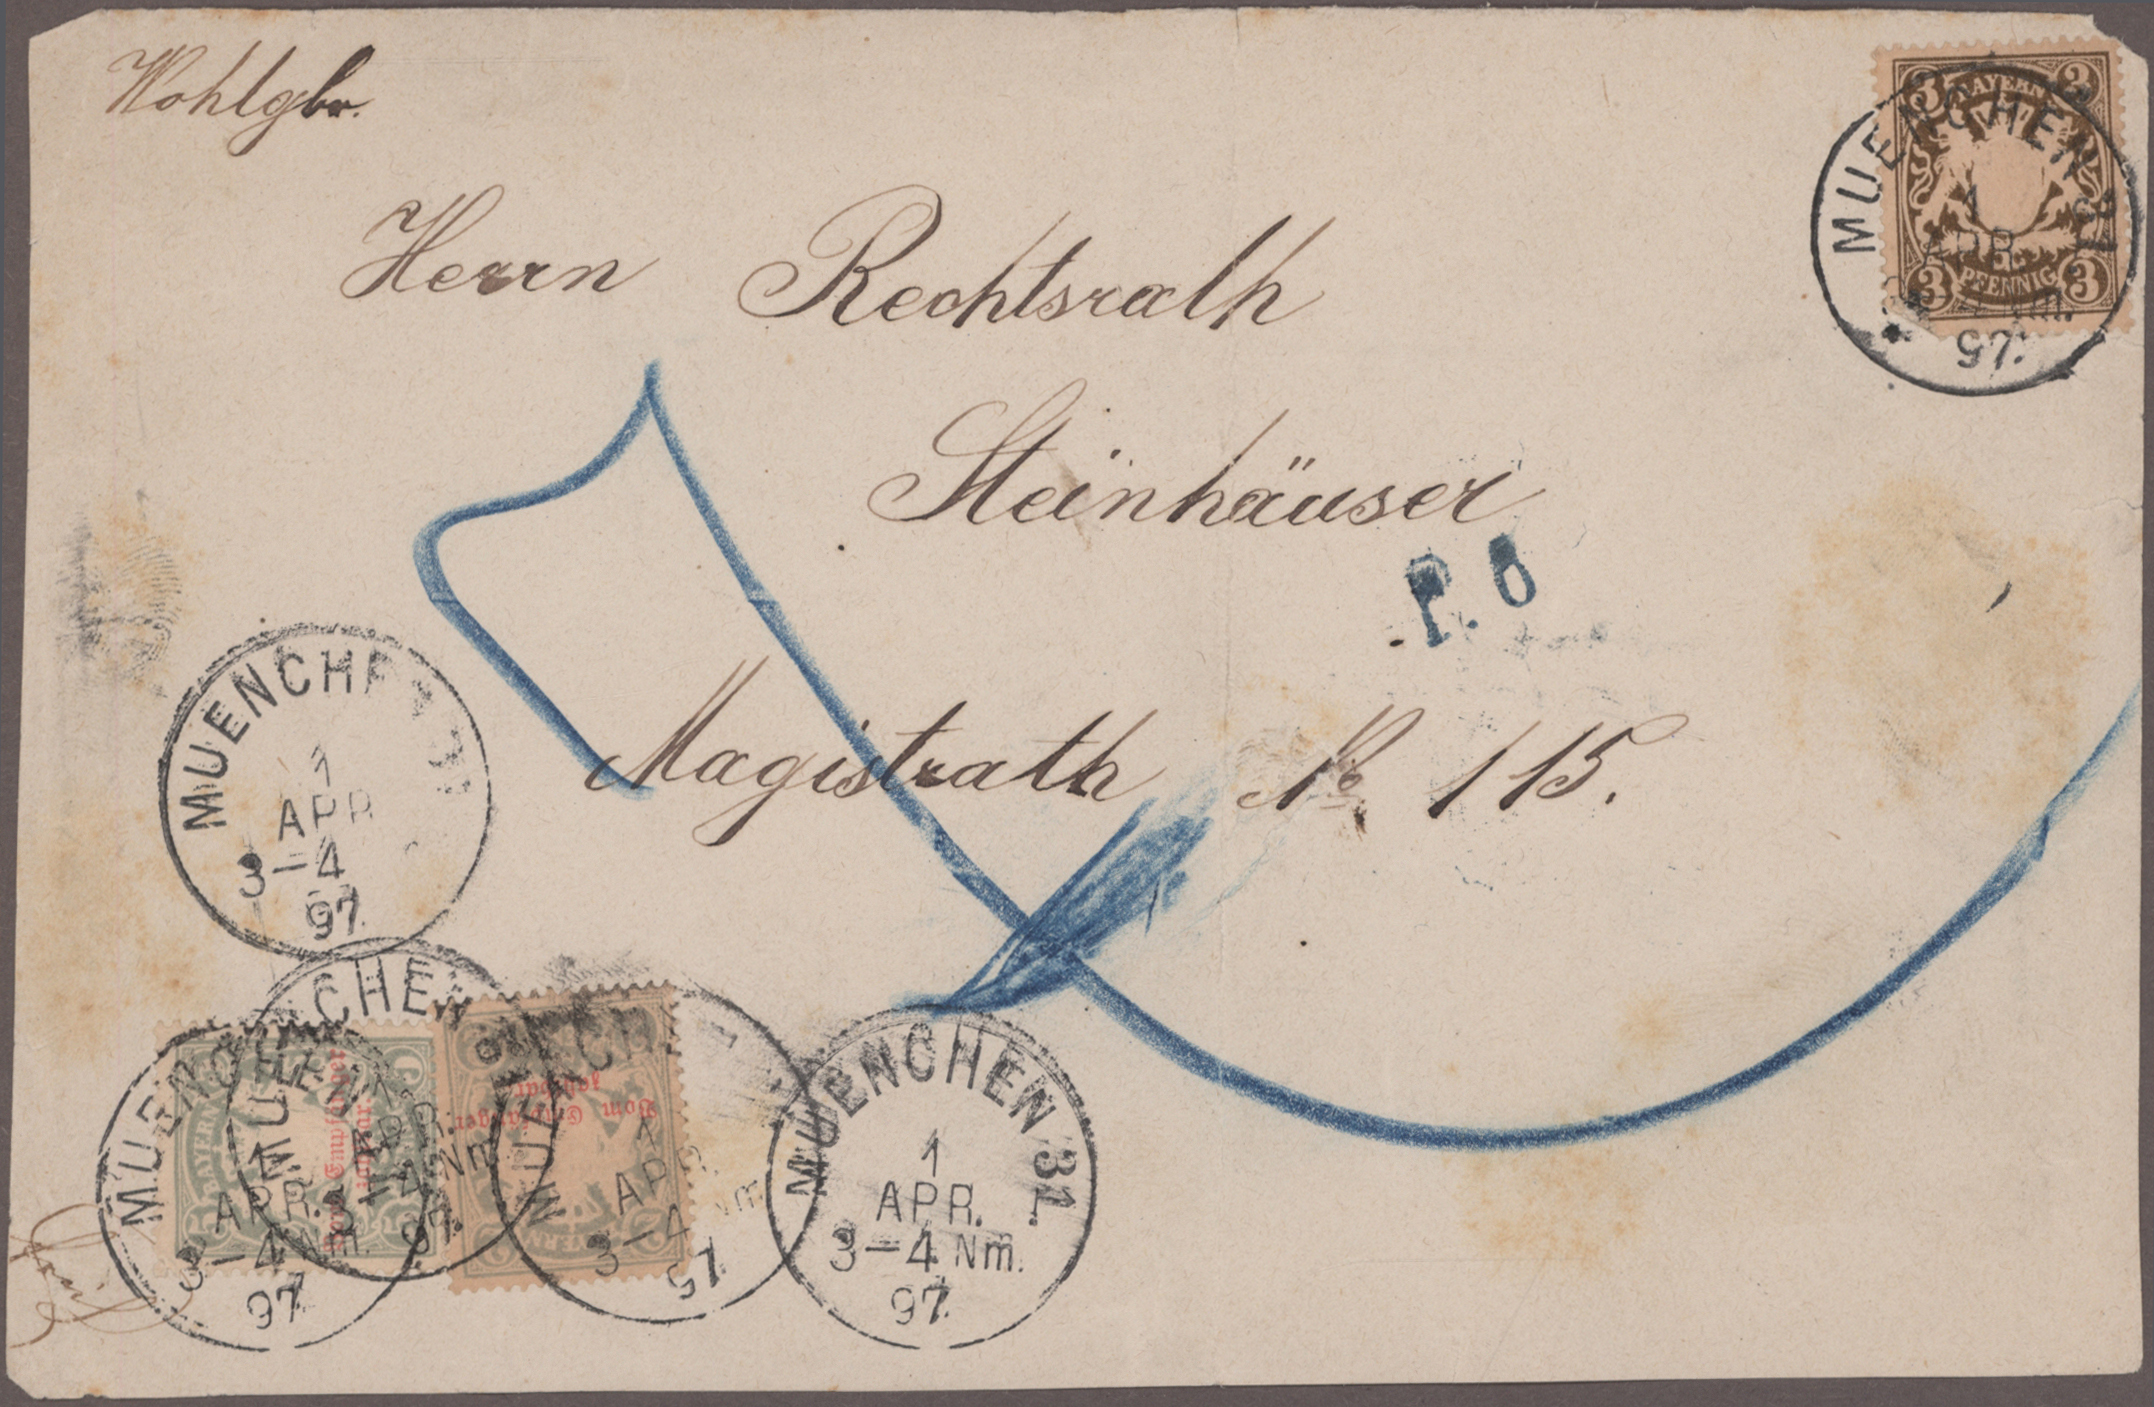 Wohlgbr.
3 BAYERN 3
3 PFENNIG 3
MUENCHEN 31
1
APR.
97.
Herrn Rechtsrath
Steinhäuser
P. 6
Magistrath № 115.
MUENCHEN
1
APR
3-4
97.
MUENCHEN
APR.
-4 Nm.
97.
MUENCHEN
1
APR.
3-4 Nm.
97.
BAYERN
Vom Empfänger
zahlbar
Vom Empfänger
zahlbar
BAYERN
1
APR.
3-4 Nm.
97.
MUENCHEN 31.
1
APR.
3-4 Nm.
97.